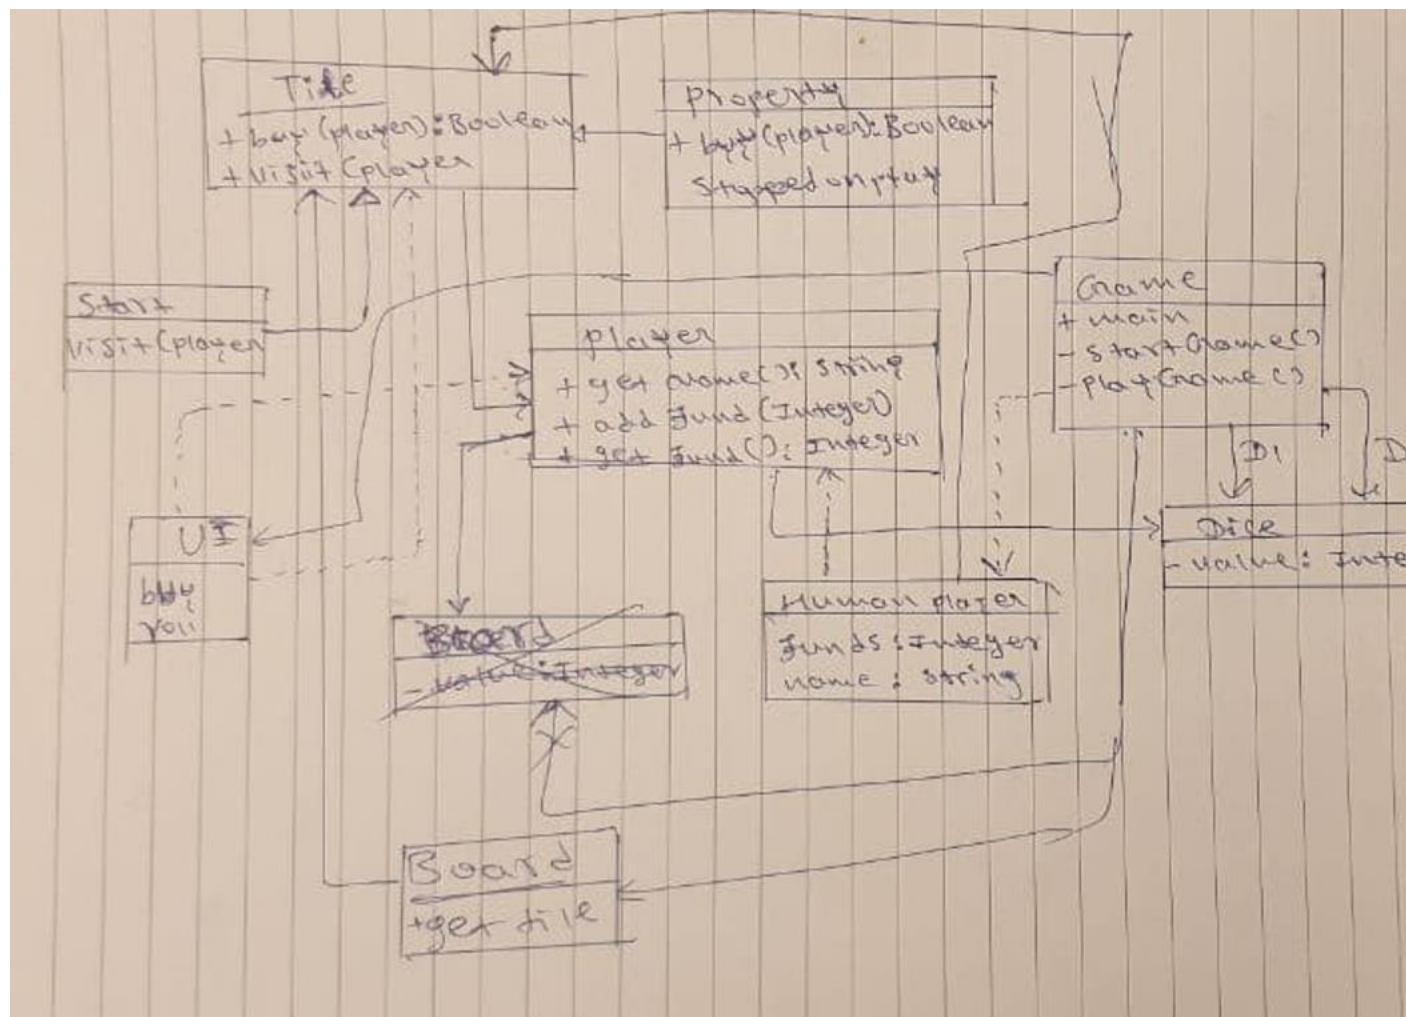 Tile
+ buy (player): Boolean
+ visit (player
Property
+ buy (player): Boolean
Start
visit (player
Game
+ main
- start Game()
- play Game()
Player
+ get name(): String
+ add Fund (Integer)
+ get Fund(): Integer
D1
D
Dice
- value: Inte
UI
buy
roll
Board
- value: Integer
Human player
Funds: Integer
name: String
Board
+ get tile